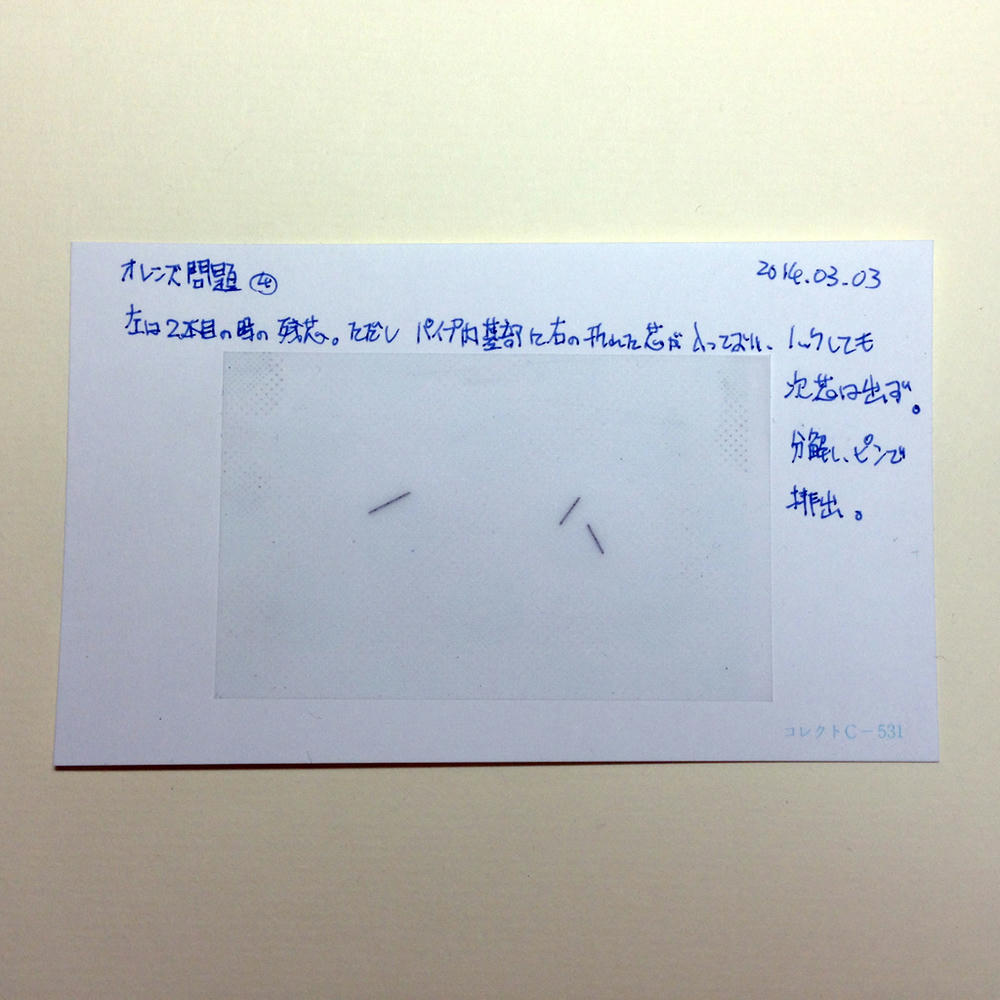 オレンズ問題④
2014.03.03
左は2本目の時の残芯。ただし パイプ内基部に右の折れた芯が入っており、ノックしても
次芯は出ず。
分解し、ピンで
排出。
コレクトC-531